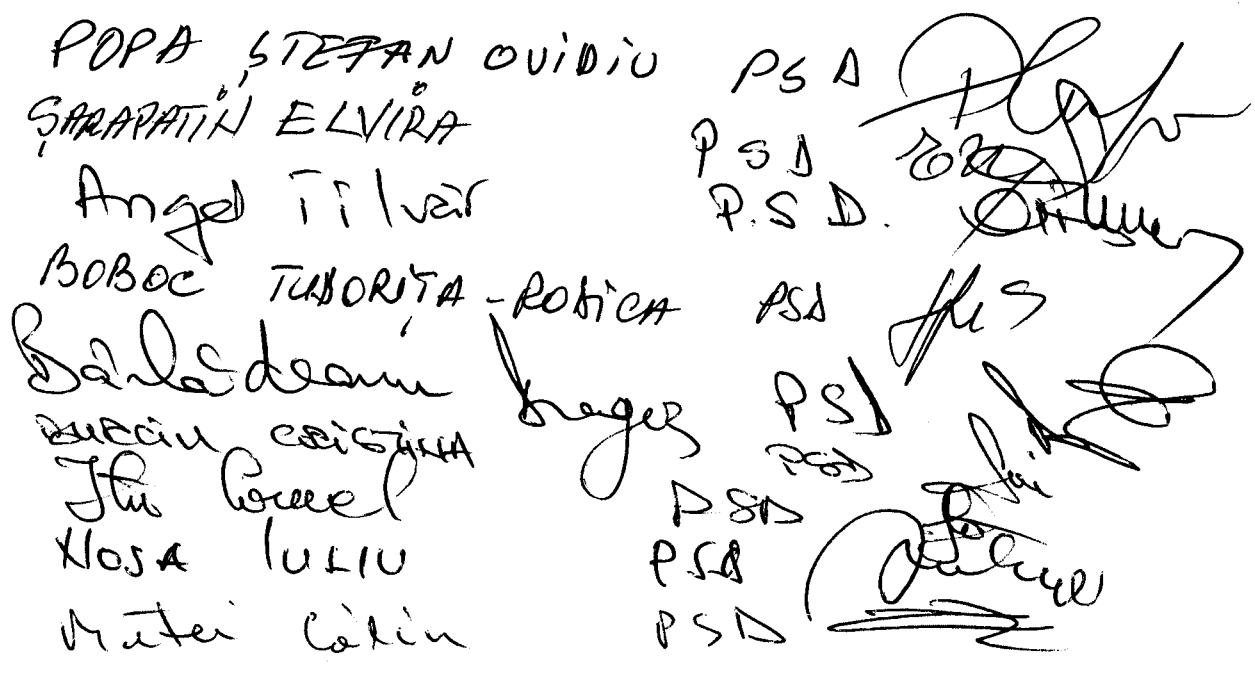 POPA ȘTEFAN OVIDIU PSD
ȘARAPATIN ELVIRA PSD
Angel Tîlvăr P.S.D.
BOBOC TUDORIȚA-RODICA PSD
Bârlădeanu Dragoș PSD
BURCIU CRISTINA PSD
Itu Cornel PSD
NOSA IULIU PSD
Matei Călin PSD